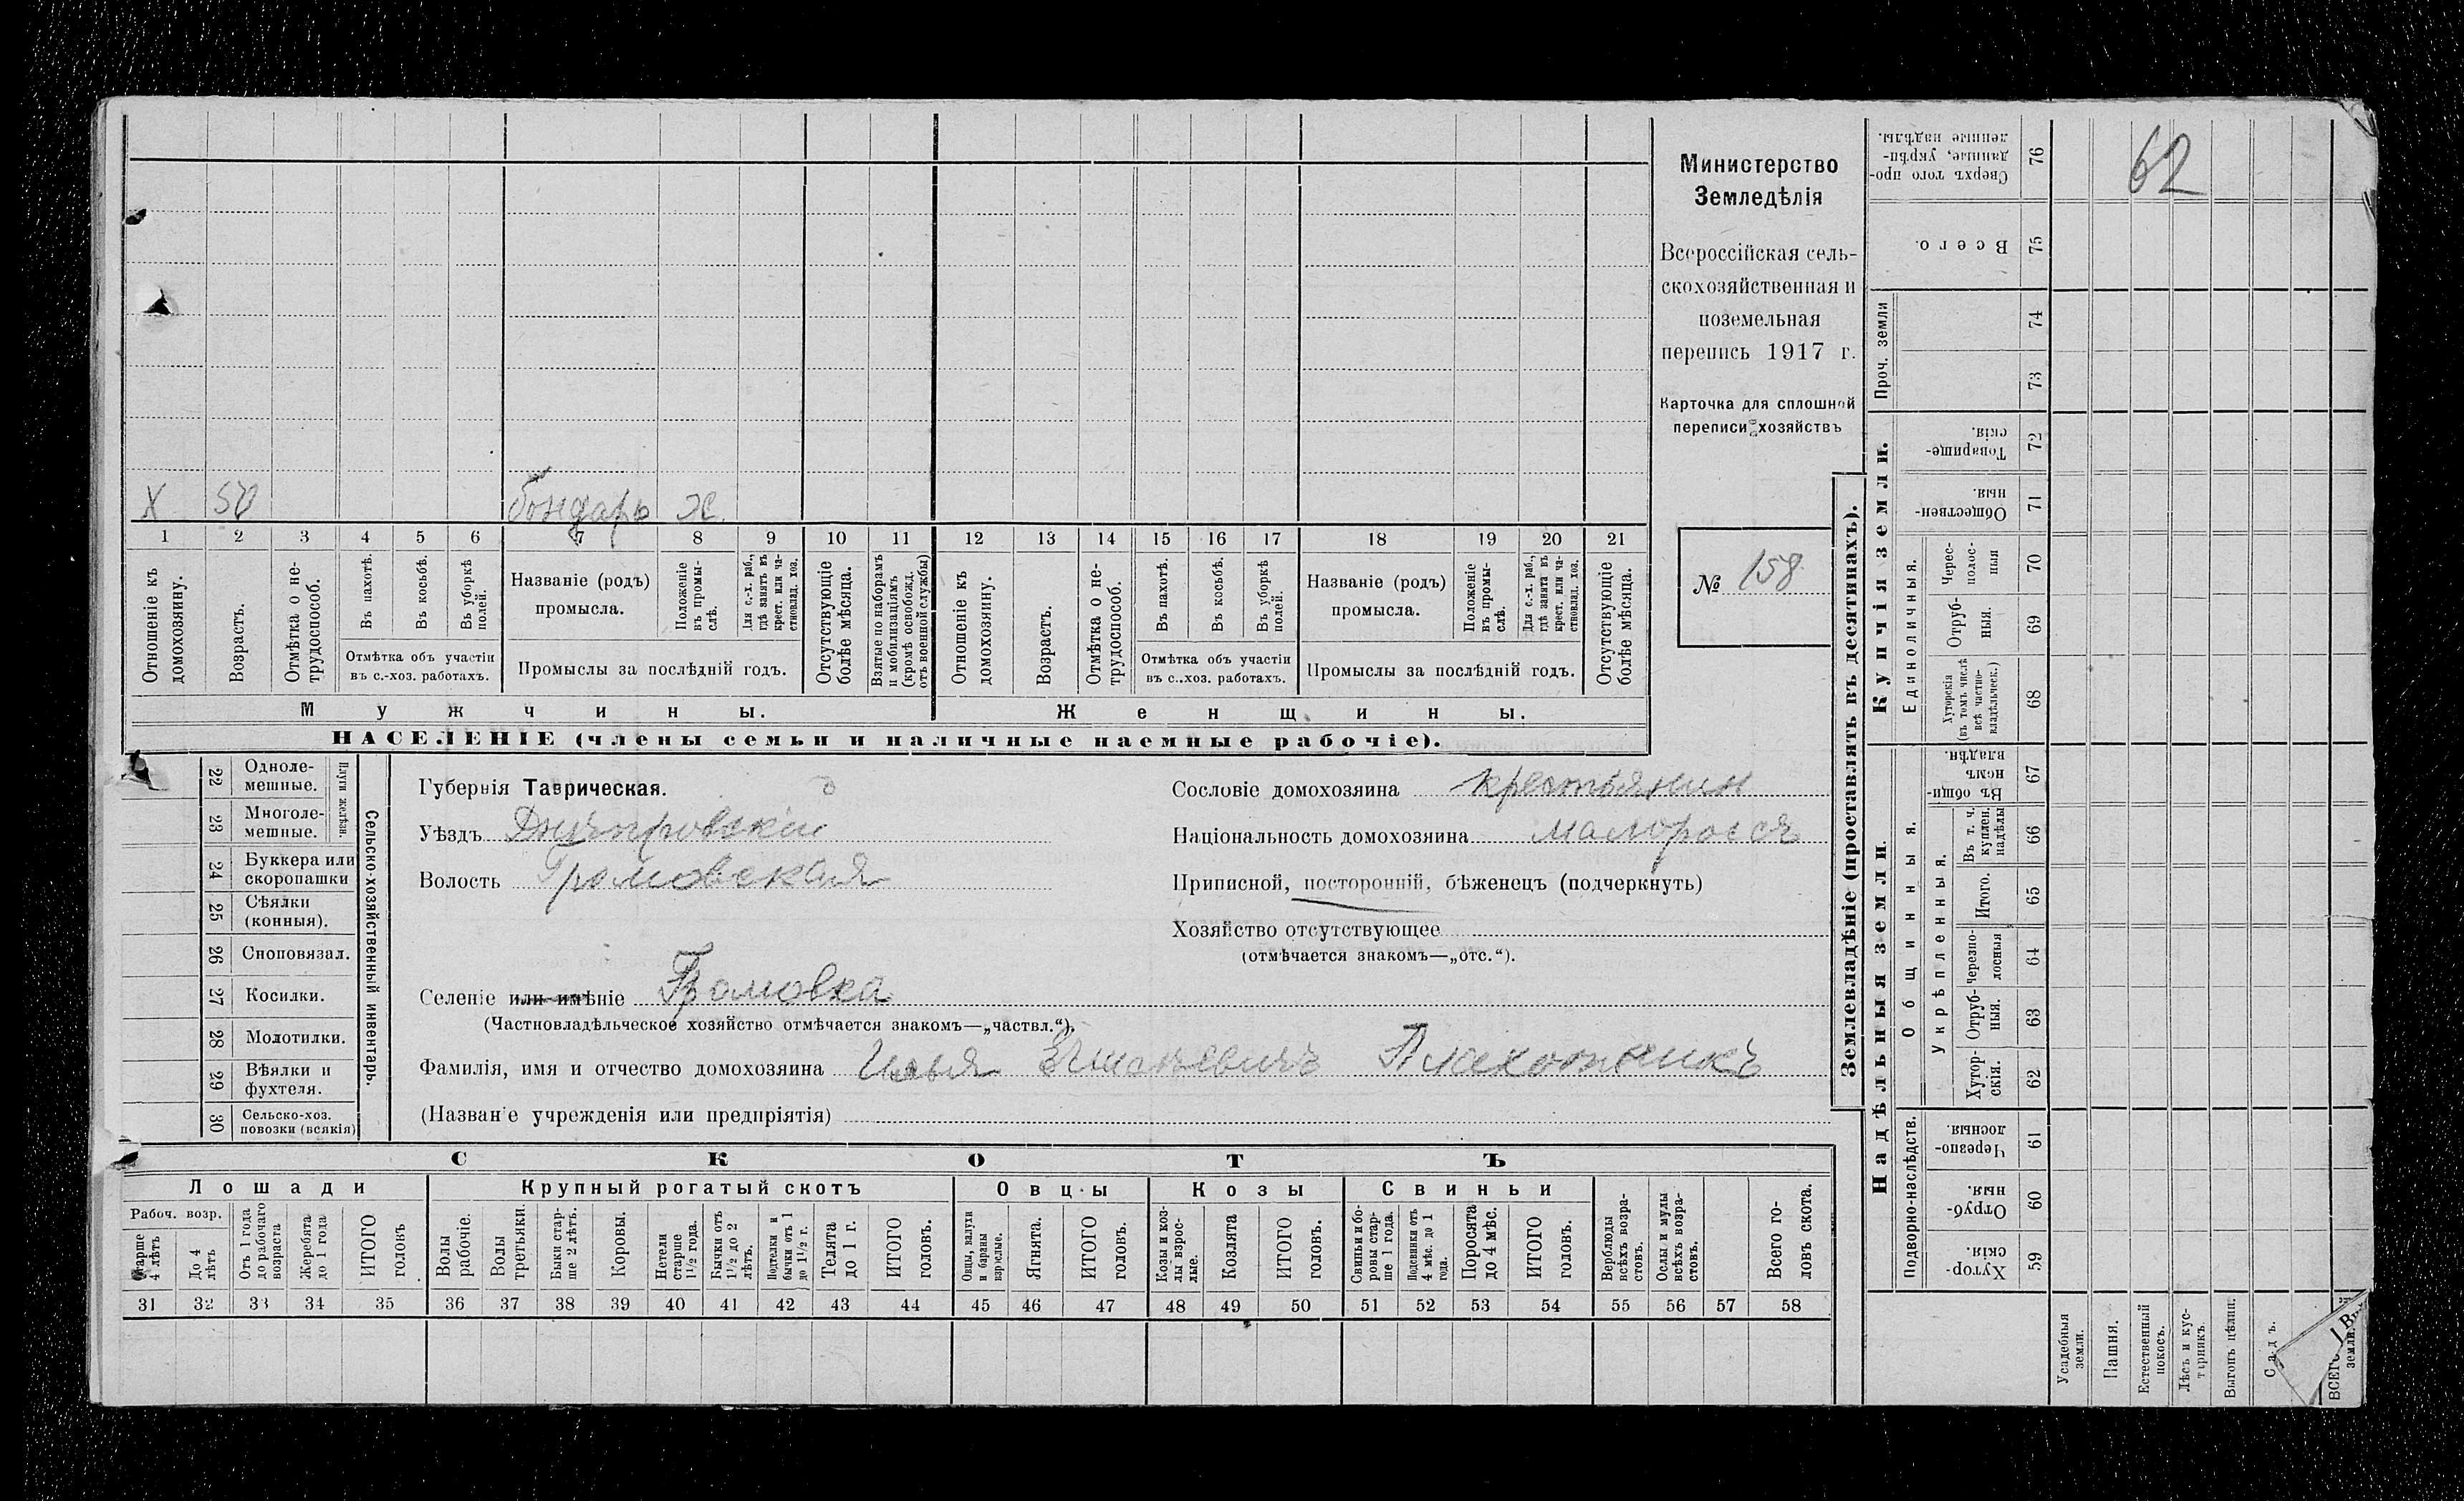 X 50 бондарь Х.
1 2 3 4 5 6 7 8 9 10 11 12 13 14 15 16 17 18 19 20 21
Отношеніе къ домохозяину.
Возрастъ.
Отмѣтка о не-трудоспособ.
Въ пахотѣ.
Въ косьбѣ.
Въ уборкѣ полей.
Отмѣтка объ участіи
въ с.-хоз. работахъ.
Названіе (родъ)
промысла.
Положеніе въ промы-слѣ.
Для с.-х. раб., гдѣ занятъ въ крест. или ча-стновлад. хоз.
Промыслы за послѣдній годъ.
Отсутствующіе болѣе мѣсяца.
Взятые по наборамъ и мобилизаціямъ (кромѣ освобожд. отъ военной службы)
Отношеніе къ домохозяину.
Возрастъ.
Отмѣтка о не-трудоспособ.
Въ пахотѣ.
Въ косьбѣ.
Въ уборкѣ полей.
Отмѣтка объ участіи
въ с.-хоз. работахъ.
Названіе (родъ)
промысла.
Положеніе въ промы-слѣ.
Для с.-х. раб., гдѣ занята въ крест. или ча-стновлад. хоз.
Промыслы за послѣдній годъ.
Отсутствующіе болѣе мѣсяца.
Мужчины.
Женщины.
НАСЕЛЕНІЕ (члены семьи и наличные наемные рабочіе).
Министерство
Земледѣлія
Всероссійская сель-
скохозяйственная и
поземельная
перепись 1917 г.
Карточка для сплошной
переписи хозяйствъ
№ 158
22 Одноле-мешные.
23 Многоле-мешные.
Плуги желѣзн.
24 Буккера или скоропашки
25 Сѣялки (конныя).
26 Сноповязал.
27 Косилки.
28 Молотилки.
29 Вѣялки и фухтеля.
30 Сельско-хоз. повозки (всякія)
Сельско-хозяйственный инвентарь.
Губернія Таврическая.
Уѣздъ Днѣпровскій
Волость Громовская
Селеніе или имѣніе Громовка
(Частновладѣльческое хозяйство отмѣчается знакомъ—„частвл.“).
Фамилія, имя и отчество домохозяина Илья
(Названіе учрежденія или предпріятія)
Сословіе домохозяина крестьянин
Національность домохозяина малоросся
Приписной, посторонній, бѣженецъ (подчеркнуть)
Хозяйство отсутствующее
(отмѣчается знакомъ—„отс.“).
СКОТЪ
Лошади
Крупный рогатый скотъ
Овцы
Козы
Свиньи
Рабоч. возр.
Старше 4 лѣтъ
До 4 лѣтъ
Отъ 1 года до рабочаго возраста
Жеребята до 1 года
ИТОГО головъ
Волы рабочіе.
Волы третьяки.
Быки стар-ше 2 лѣтъ.
Коровы.
Нетели старше 1½ года.
Бычки отъ 1½ до 2 лѣтъ.
Подтелки и бычки отъ 1 до 1½ г.
Телята до 1 г.
ИТОГО головъ.
Овцы, валухи и бараны взрослые.
Ягнята.
ИТОГО головъ.
Козы и коз-лы взрос-лые.
Козлята
ИТОГО головъ.
Свиньи и бо-ровы стар-ше 1 года.
Подсвинки отъ 4 мѣс. до 1 года.
Поросята до 4 мѣс.
ИТОГО головъ.
Верблюды всѣхъ возра-стовъ.
Ослы и мулы всѣхъ возра-стовъ.
Всего го-ловъ скота.
31 32 33 34 35 36 37 38 39 40 41 42 43 44 45 46 47 48 49 50 51 52 53 54 55 56 57 58
Землевладѣніе (проставлять въ десятинахъ).
Купчія земли.
Надѣльныя земли.
Проч. земли
Единоличныя.
Общинныя.
Укрѣпленныя.
Подворно-наслѣдств.
62
Сверхъ того про-данные, укрѣп-ленные надѣлы. 76
Всего. 75
74
73
Товарище-скія. 72
Обществен-ныя. 71
Черес-полос-ныя 70
Отруб-ныя. 69
Хуторскія (въ томъ числѣ всѣ частно-владѣльческ.) 68
Въ общин-номъ владѣн. 67
Въ т. ч. куплен. надѣлы 66
Итого. 65
Черезпо-лосныя 64
Отруб-ныя. 63
Хутор-скія. 62
Черезпо-лосныя. 61
Отруб-ныя. 60
Хутор-скія. 59
Усадебныя земли.
Пашня.
Естественный покосъ.
Лѣсъ и кус-тарникъ.
Выгонъ цѣлин.
Садъ.
ВСЕГО земли.